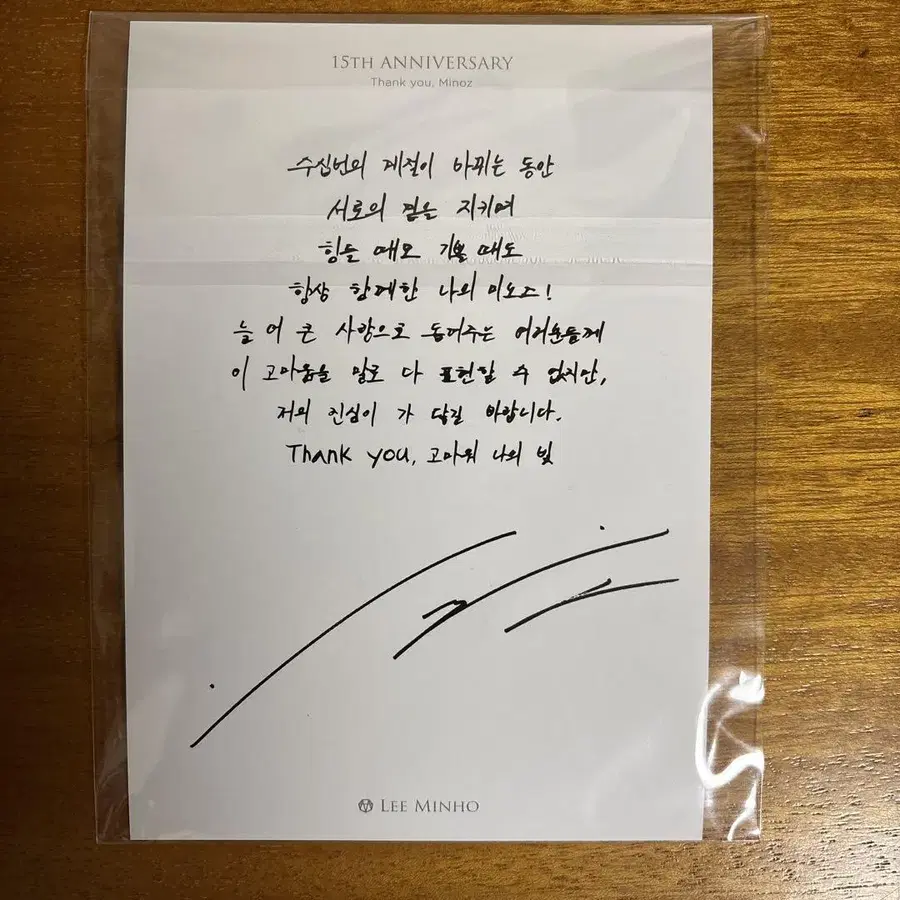 15TH ANNIVERSARY
Thank you, Minoz
수십번의 계절이 바뀌는 동안
서로의 곁을 지키며
힘들 때도 기쁠 때도
항상 함께한 나의 미노즈!
늘 더 큰 사랑으로 품어주는 여러분들께
이 고마움을 말로 다 표현할 수 없지만,
저의 진심이 가 닿길 바랍니다.
Thank you, 고마워 나의 빛
LEE MINHO